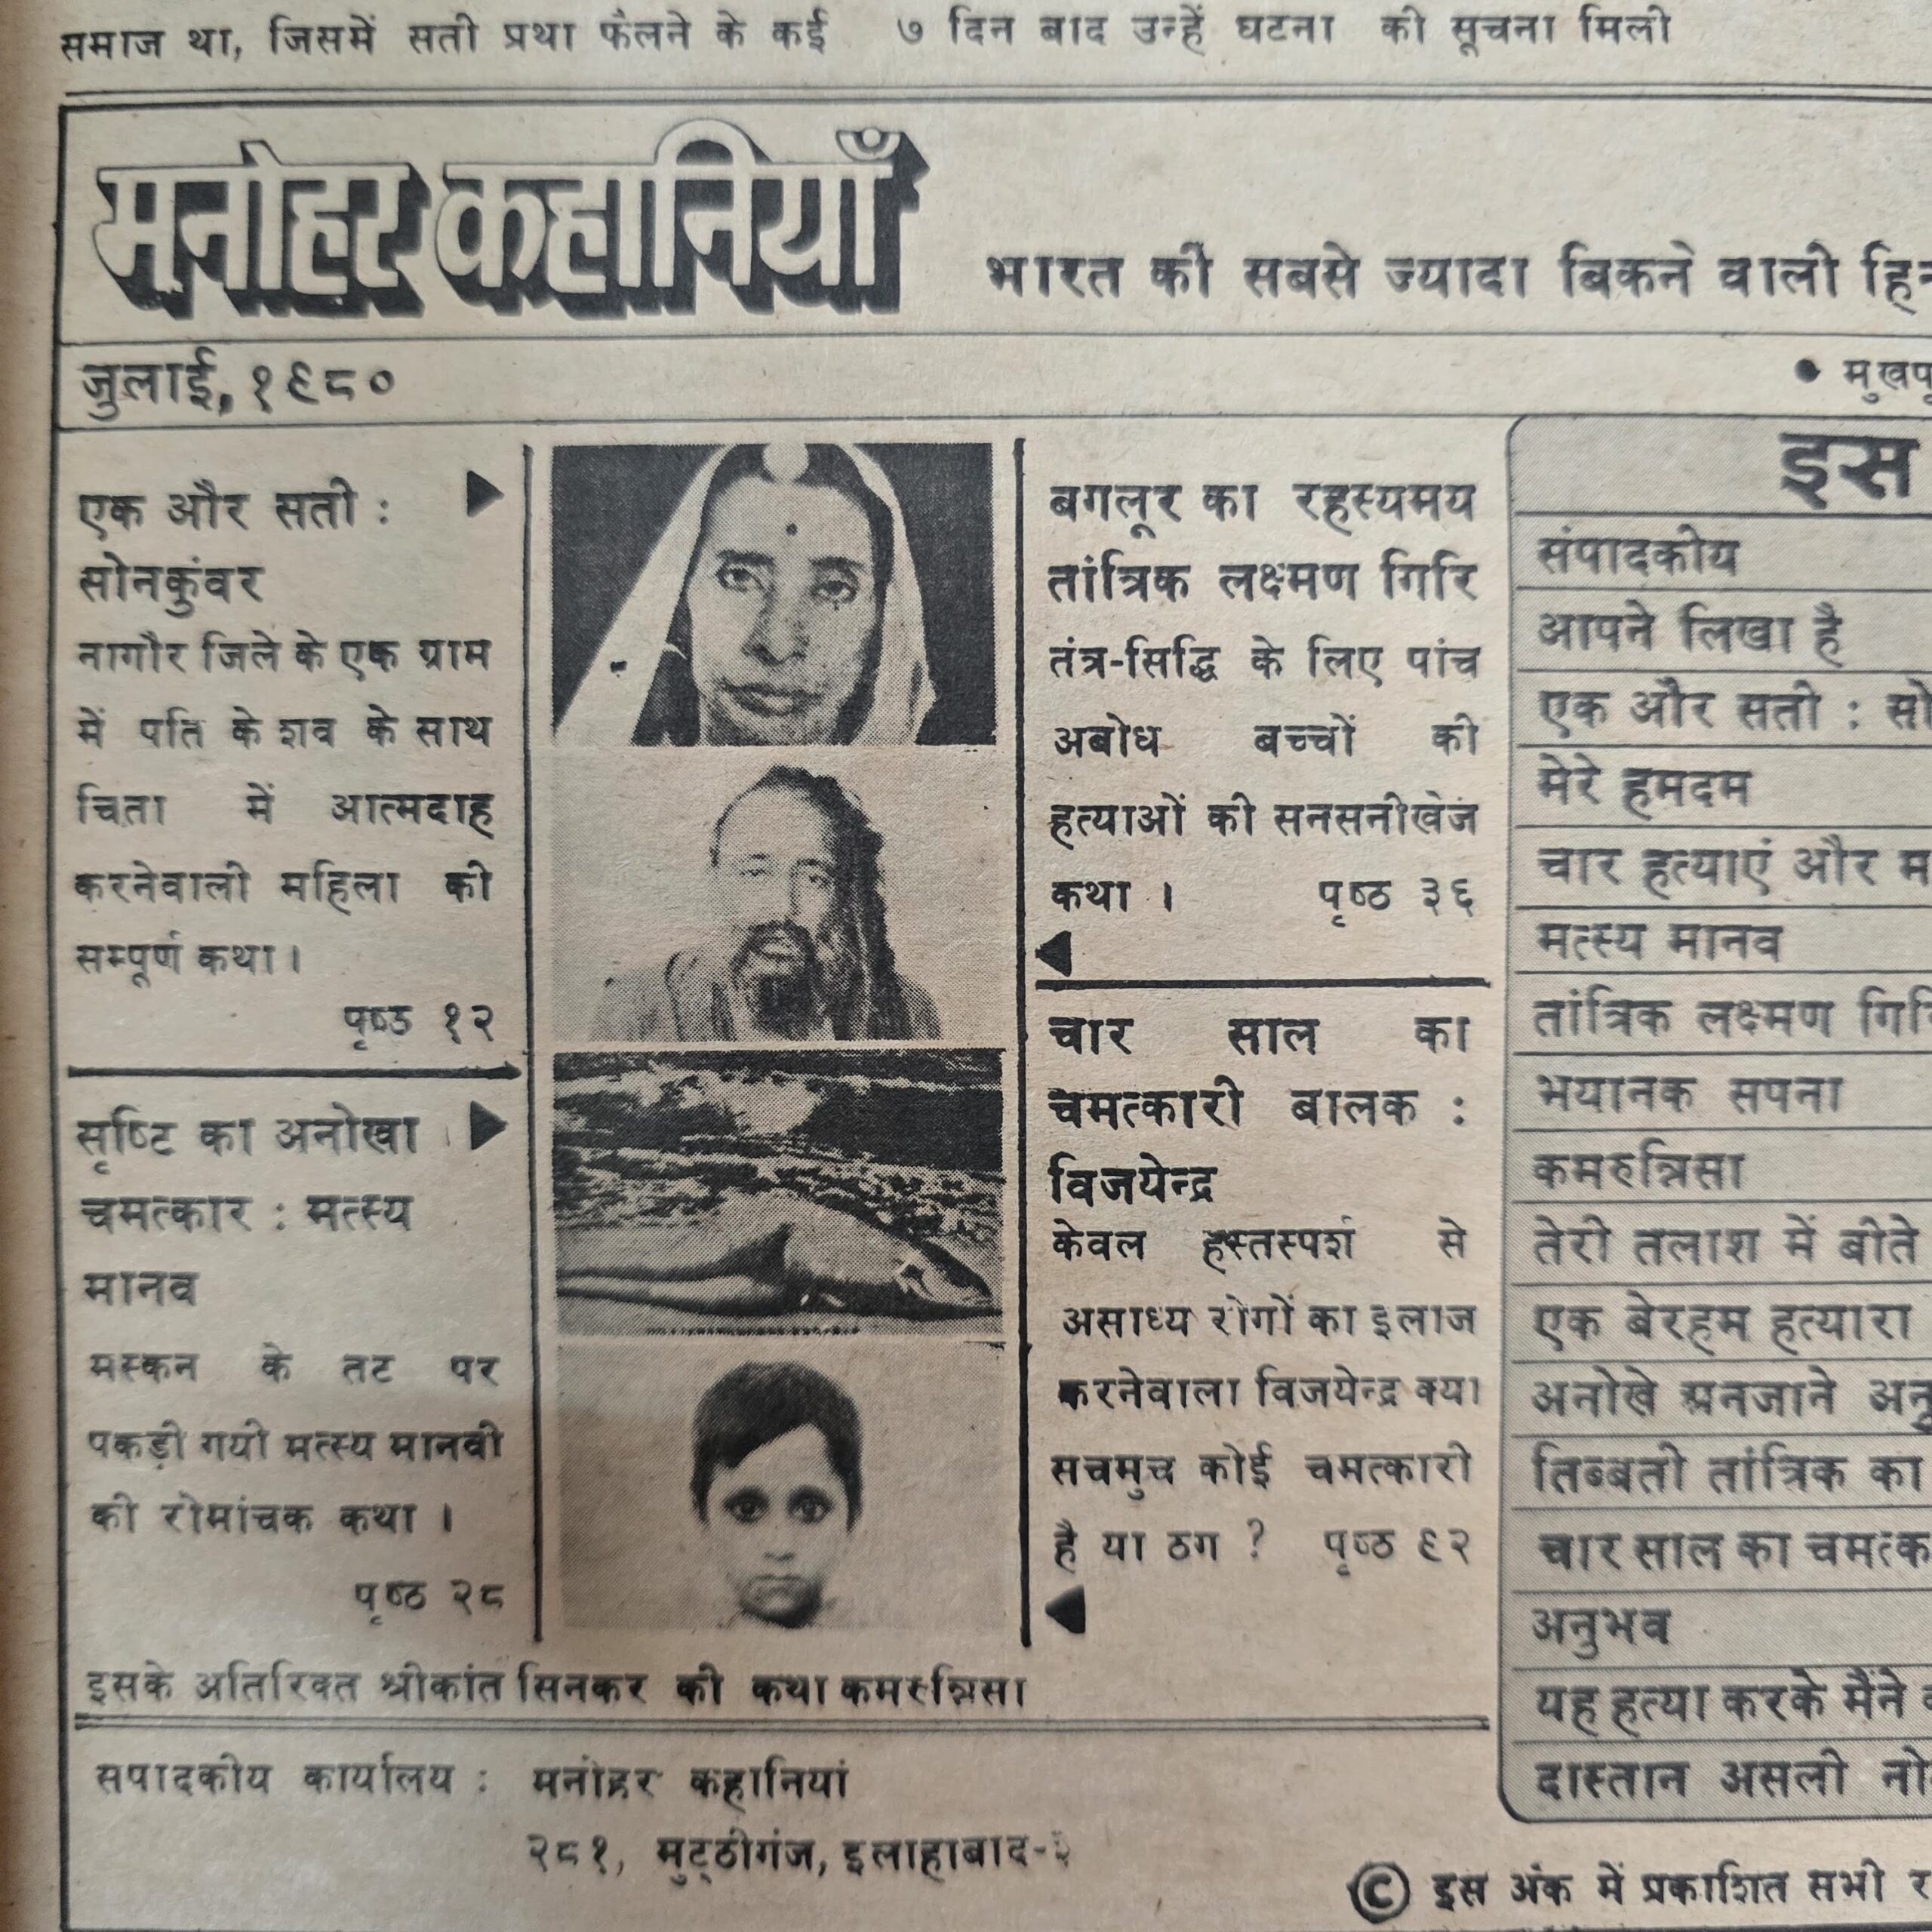 समाज था, जिसमें सती प्रथा फैलने के कई
७ दिन बाद उन्हें घटना की सूचना मिली
मनोहर कहानियाँ
भारत की सबसे ज्यादा बिकने वाली
जुलाई, १९८०
एक और सती :
सोनकुंवर
नागौर जिले के एक ग्राम
में पति के शव के साथ
चिता में आत्मदाह
करनेवाली महिला की
सम्पूर्ण कथा।
पृष्ठ १२
सृष्टि का अनोखा
चमत्कार : मत्स्य
मानव
मस्कन के तट पर
पकड़ी गयी मत्स्य मानवी
की रोमांचक कथा ।
पृष्ठ २८
बगलूर का रहस्यमय
तांत्रिक लक्ष्मण गिरि
तंत्र-सिद्धि के लिए पांच
अबोध बच्चों की
हत्याओं की सनसनीखेज
कथा । पृष्ठ ३६
चार साल का
चमत्कारी बालक :
विजयेन्द्र
केवल हस्तस्पर्श से
असाध्य रोगों का इलाज
करनेवाला विजयेन्द्र क्या
सचमुच कोई चमत्कारी
है या ठग ? पृष्ठ ९२
इसके अतिरिक्त श्रीकांत सिनकर की कथा कमरुन्निसा
सपादकीय कार्यालय : मनोहर कहानियां
२८१, मुट्ठीगंज, इलाहाबाद-
इस
संपादकीय
आपने लिखा है
एक और सती :
मेरे हमदम
चार हत्याएं और
मत्स्य मानव
तांत्रिक लक्ष्मण
भयानक सपना
कमरुन्निसा
तेरी तलाश में बीते
एक बेरहम हत्यारा
अनोखे अनजाने
तिब्बती तांत्रिक का
चार साल का
अनुभव
यह हत्या करके मैंने
दास्तान असली
© इस अंक में प्रकाशित सभी